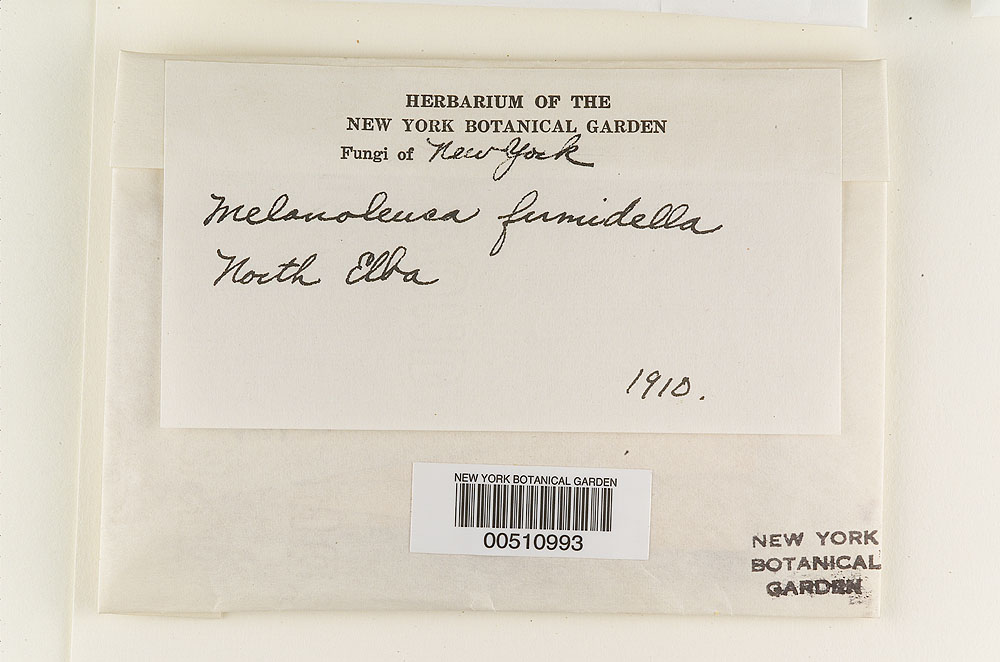 HERBARIUM OF THE
NEW YORK BOTANICAL GARDEN
Fungi of New York
Melanoleuca fumidella
North Elba
1910.
NEW YORK BOTANICAL GARDEN
00510993
NEW YORK
BOTANICAL
GARDEN